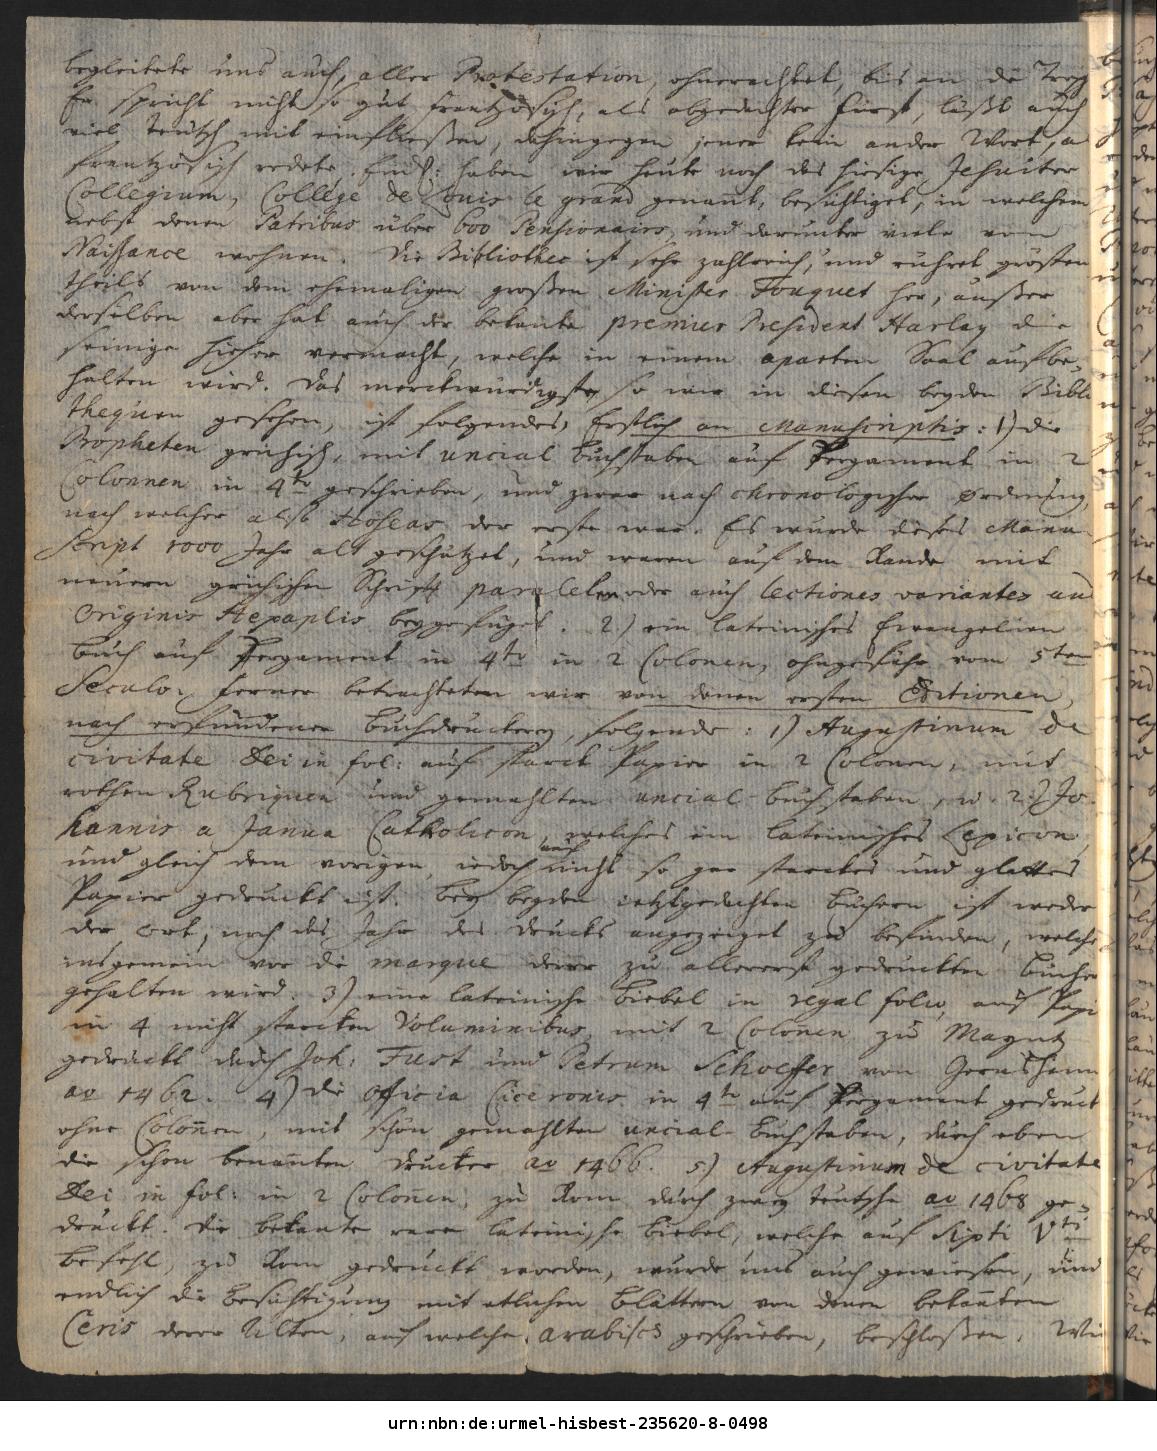 begleitete uns auch, aller Protestation, ohnerachtet, bis an die Trep
Er spricht nicht so gut frantzösisch, als obgedachter Fürst, läßt auch
viel teutsch mit einfließen, dahingegen jener kein ander Wort, a
frantzösisch redete. Endl: haben wir heute noch das hiesige Jesuiter
Collegium, College de Louis le grand genannt, besichtiget, in welchem
nebst denen Patribus über 600 Pensionairs, und darunter viele von
Naissance wohnen. Die Bibliothec ist sehr zahlreich, und rühret grösten
theils von dem ehemaligen großen Minister Fouquet her, außer
derselben aber hat auch der bekante premier President Harlay die
seinige hieher vermacht, welche in einem aparten Saal aufbe-
halten wird. Das merckwürdigste, so wir in diesen beyden Biblio
thequen gesehen, ist folgendes, Erstlich an Manuscriptis: 1) die
Propheten grichisch, mit uncial Buchstaben auf Pergament in 2
Colonnen in 4to geschrieben, und zwar nach chronologischer Ordnung,
nach welcher also Hoseas der erste war. Es wurde dieses Manu-
script 1000 Jahr alt geschätzet, und waren auf dem Rande mit
neuern grichischen Schrifft paralelen oder auch lectiones variantes aus
Originis Hexaplis beygefüget. 2.) ein lateinisches Evangelien
Buch auf Pergament in 4to in 2 Colonen, ohngefähr vom 5ten
Seculo. ferner betrachteten wir von denen ersten Editionen,
nach erfundener Buchdruckerey, folgende: 1) Augustinum de
civitate Dei in fol: auf starck Papier in 2 Colonen, mit
rothen Rubriquen und gemahlten uncial-Buchstaben, 2.) Jo-
hannis a Janua Catholicon, welches ein lateinisches Lexicon,
und gleich dem vorigen, jedoch auch nicht so gar starckes und glattes
Papier gedruckt ist. Bey beyden jetztgedachten Büchern ist weder
der Ort, noch das Jahr des Drucks angezeiget zu befinden, welches
insgemein vor die marque derer zu allererst gedruckten Bücher
gehalten wird. 3) eine lateinische Biebel in regal folio, auf Papi
in 4 nicht starcken Voluminibus, mit 2 Colonen zu Mayntz
gedruckt durch Joh: Fust und Petrum Schoeffer von Gernsheim
ao 1462. 4) die Officia Ciceronis in 4to auf Pergament gedruckt
ohne Colonnen, mit schön gemahlten uncial-Buchstaben, durch eben
die schon benannten Drucker ao 1466. 5.) Augustinum de civitate
Dei in fol: in 2 Colonnen, zu Rom durch zwey teutsche ao 1468 ge-
druckt. Die bekante rare lateinische Biebel, welche auf Sixti Vti
Befehl, zu Rom gedruckt worden, wurde uns auch gewiesen, und
endlich die Besichtigung mit etlichen Blättern von denen bekannten
Ceris derer Alten, auf welche arabisch geschrieben, beschloßen. Wi
urn:nbn:de:urmel-hisbest-235620-8-0498